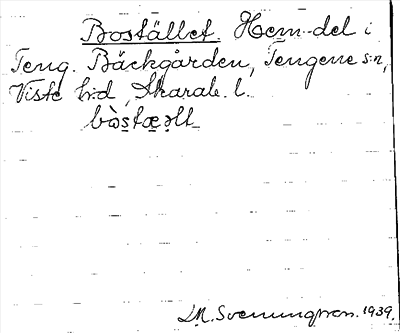 Bostället. Hem.-del i
Teng. Bäckgården, Tengene s:n,
Viste h:d, Skarab. l.
bòstæ̣lt
M. Svenungsson. 1939.